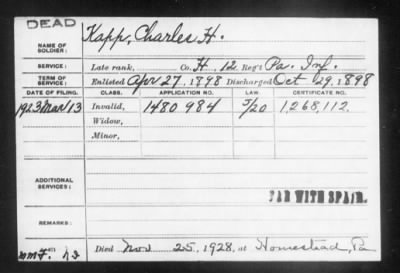 DEAD
NAME OF SOLDIER: Kapp, Charles H.
SERVICE: Late rank, Co. H, 12 Reg't Pa. Inf.
TERM OF SERVICE: Enlisted Apr 27, 1898 Discharged Oct 29, 1898
DATE OF FILING. CLASS. APPLICATION NO. LAW. CERTIFICATE NO.
1923 Mar 13 Invalid, 1480984 5/20 1,268,112.
Widow,
Minor,
ADDITIONAL SERVICES:
WAR WITH SPAIN.
REMARKS:
Died Nov 25, 1928, at Homestead, Pa